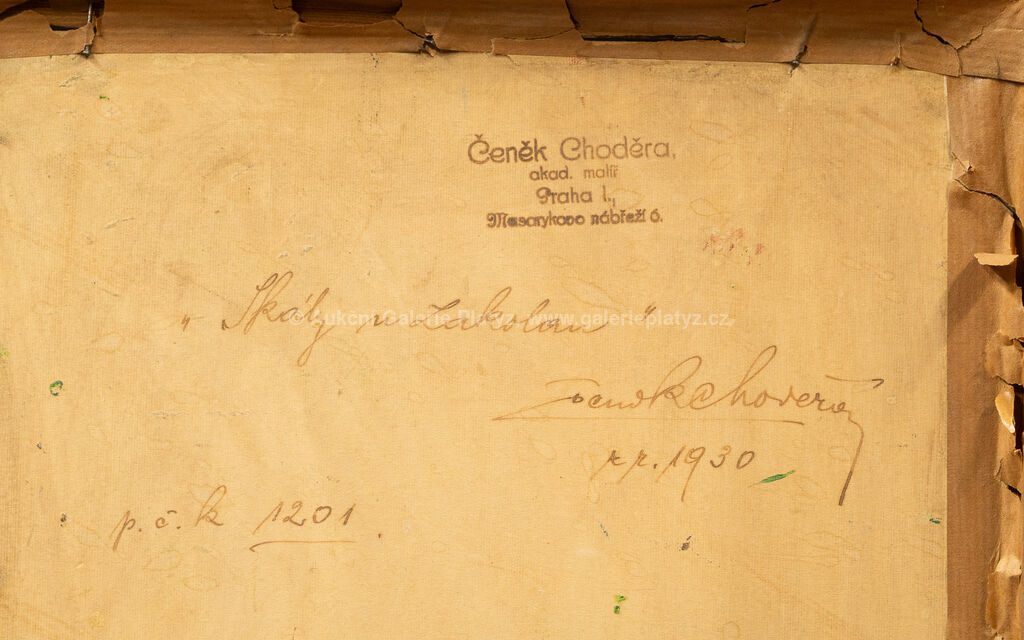 Čeněk Choděra,
akad. malíř
Praha I.,
Masarykovo nábřeží 6.
„Skály u Zákolan"
© Aukční Galerie Platýz, www.galerieplatyz.cz
Čeněk Choděra
1930
p. č. k 1201.